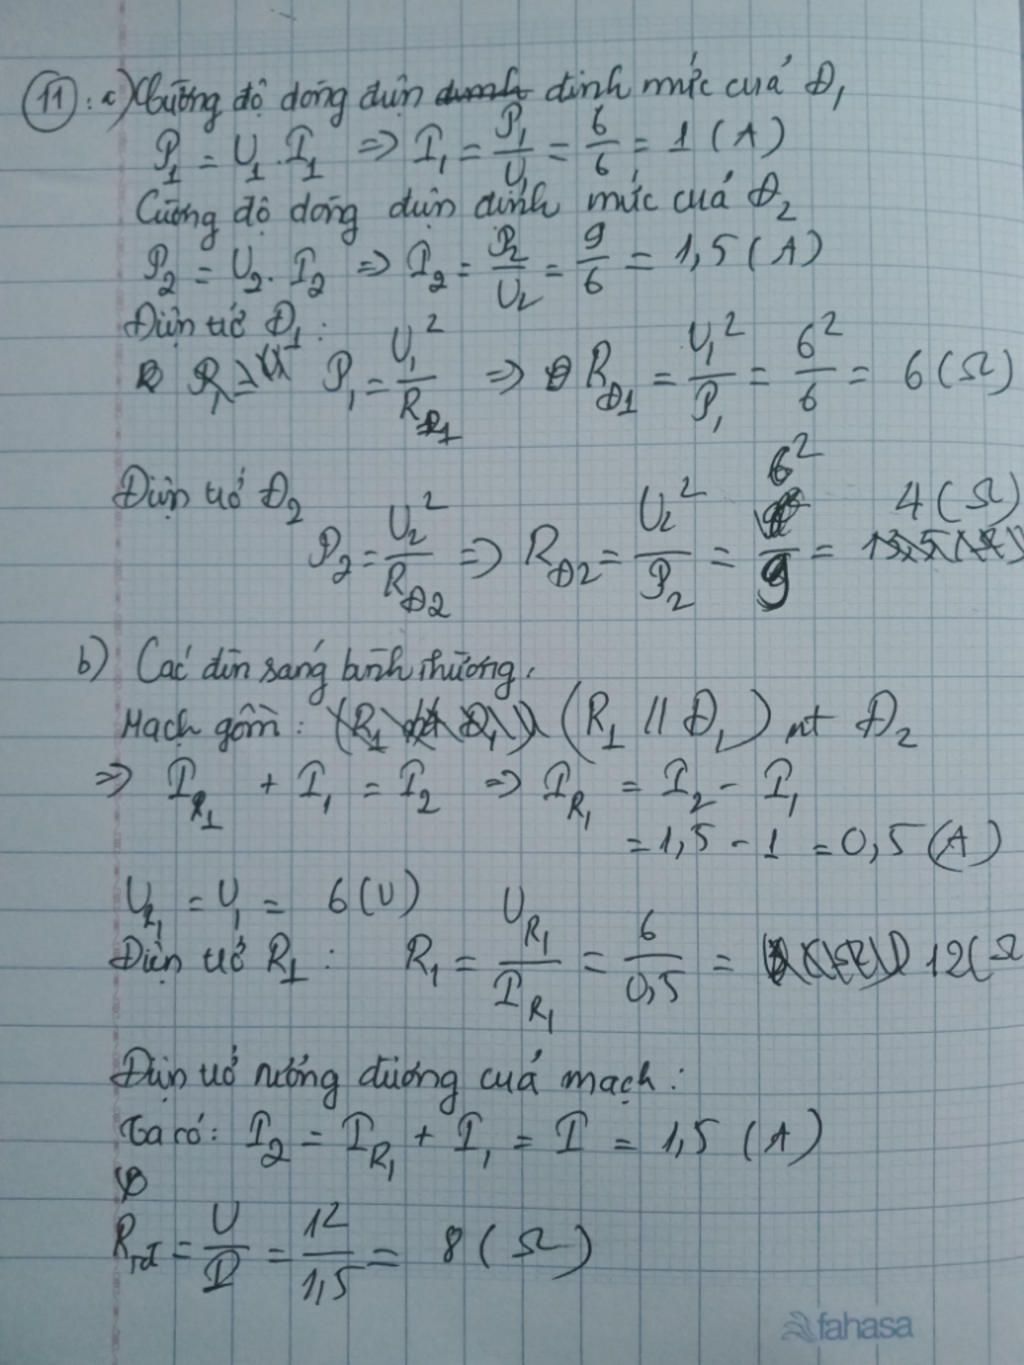 11: a) Cường độ dòng điện định mức của Đ₁
P₁ = U₁.I₁ => I₁ = P₁/U₁ = 6/6 = 1 (A)
Cường độ dòng điện định mức của Đ₂
P₂ = U₂.I₂ => I₂ = P₂/U₂ = 9/6 = 1,5 (A)
Điện trở Đ₁:
P₁ = U₁²/R_Đ1 => R_Đ1 = U₁²/P₁ = 6²/6 = 6 (Ω)
Điện trở Đ₂
P₂ = U₂²/R_Đ2 => R_Đ2 = U₂²/P₂ = 6²/9 = 4 (Ω)
b) Các đèn sáng bình thường.
Mạch gồm: (R₁ // Đ₁) nt Đ₂
=> I_R1 + I₁ = I₂ => I_R1 = I₂ - I₁
= 1,5 - 1 = 0,5 (A)
U_R1 = U₁ = 6 (V)
Điện trở R₁: R₁ = U_R1/I_R1 = 6/0,5 = 12 (Ω
Điện trở tương đương của mạch:
Ta có: I₂ = I_R1 + I₁ = I = 1,5 (A)
R_tđ = U/I = 12/1,5 = 8 (Ω)
fahasa